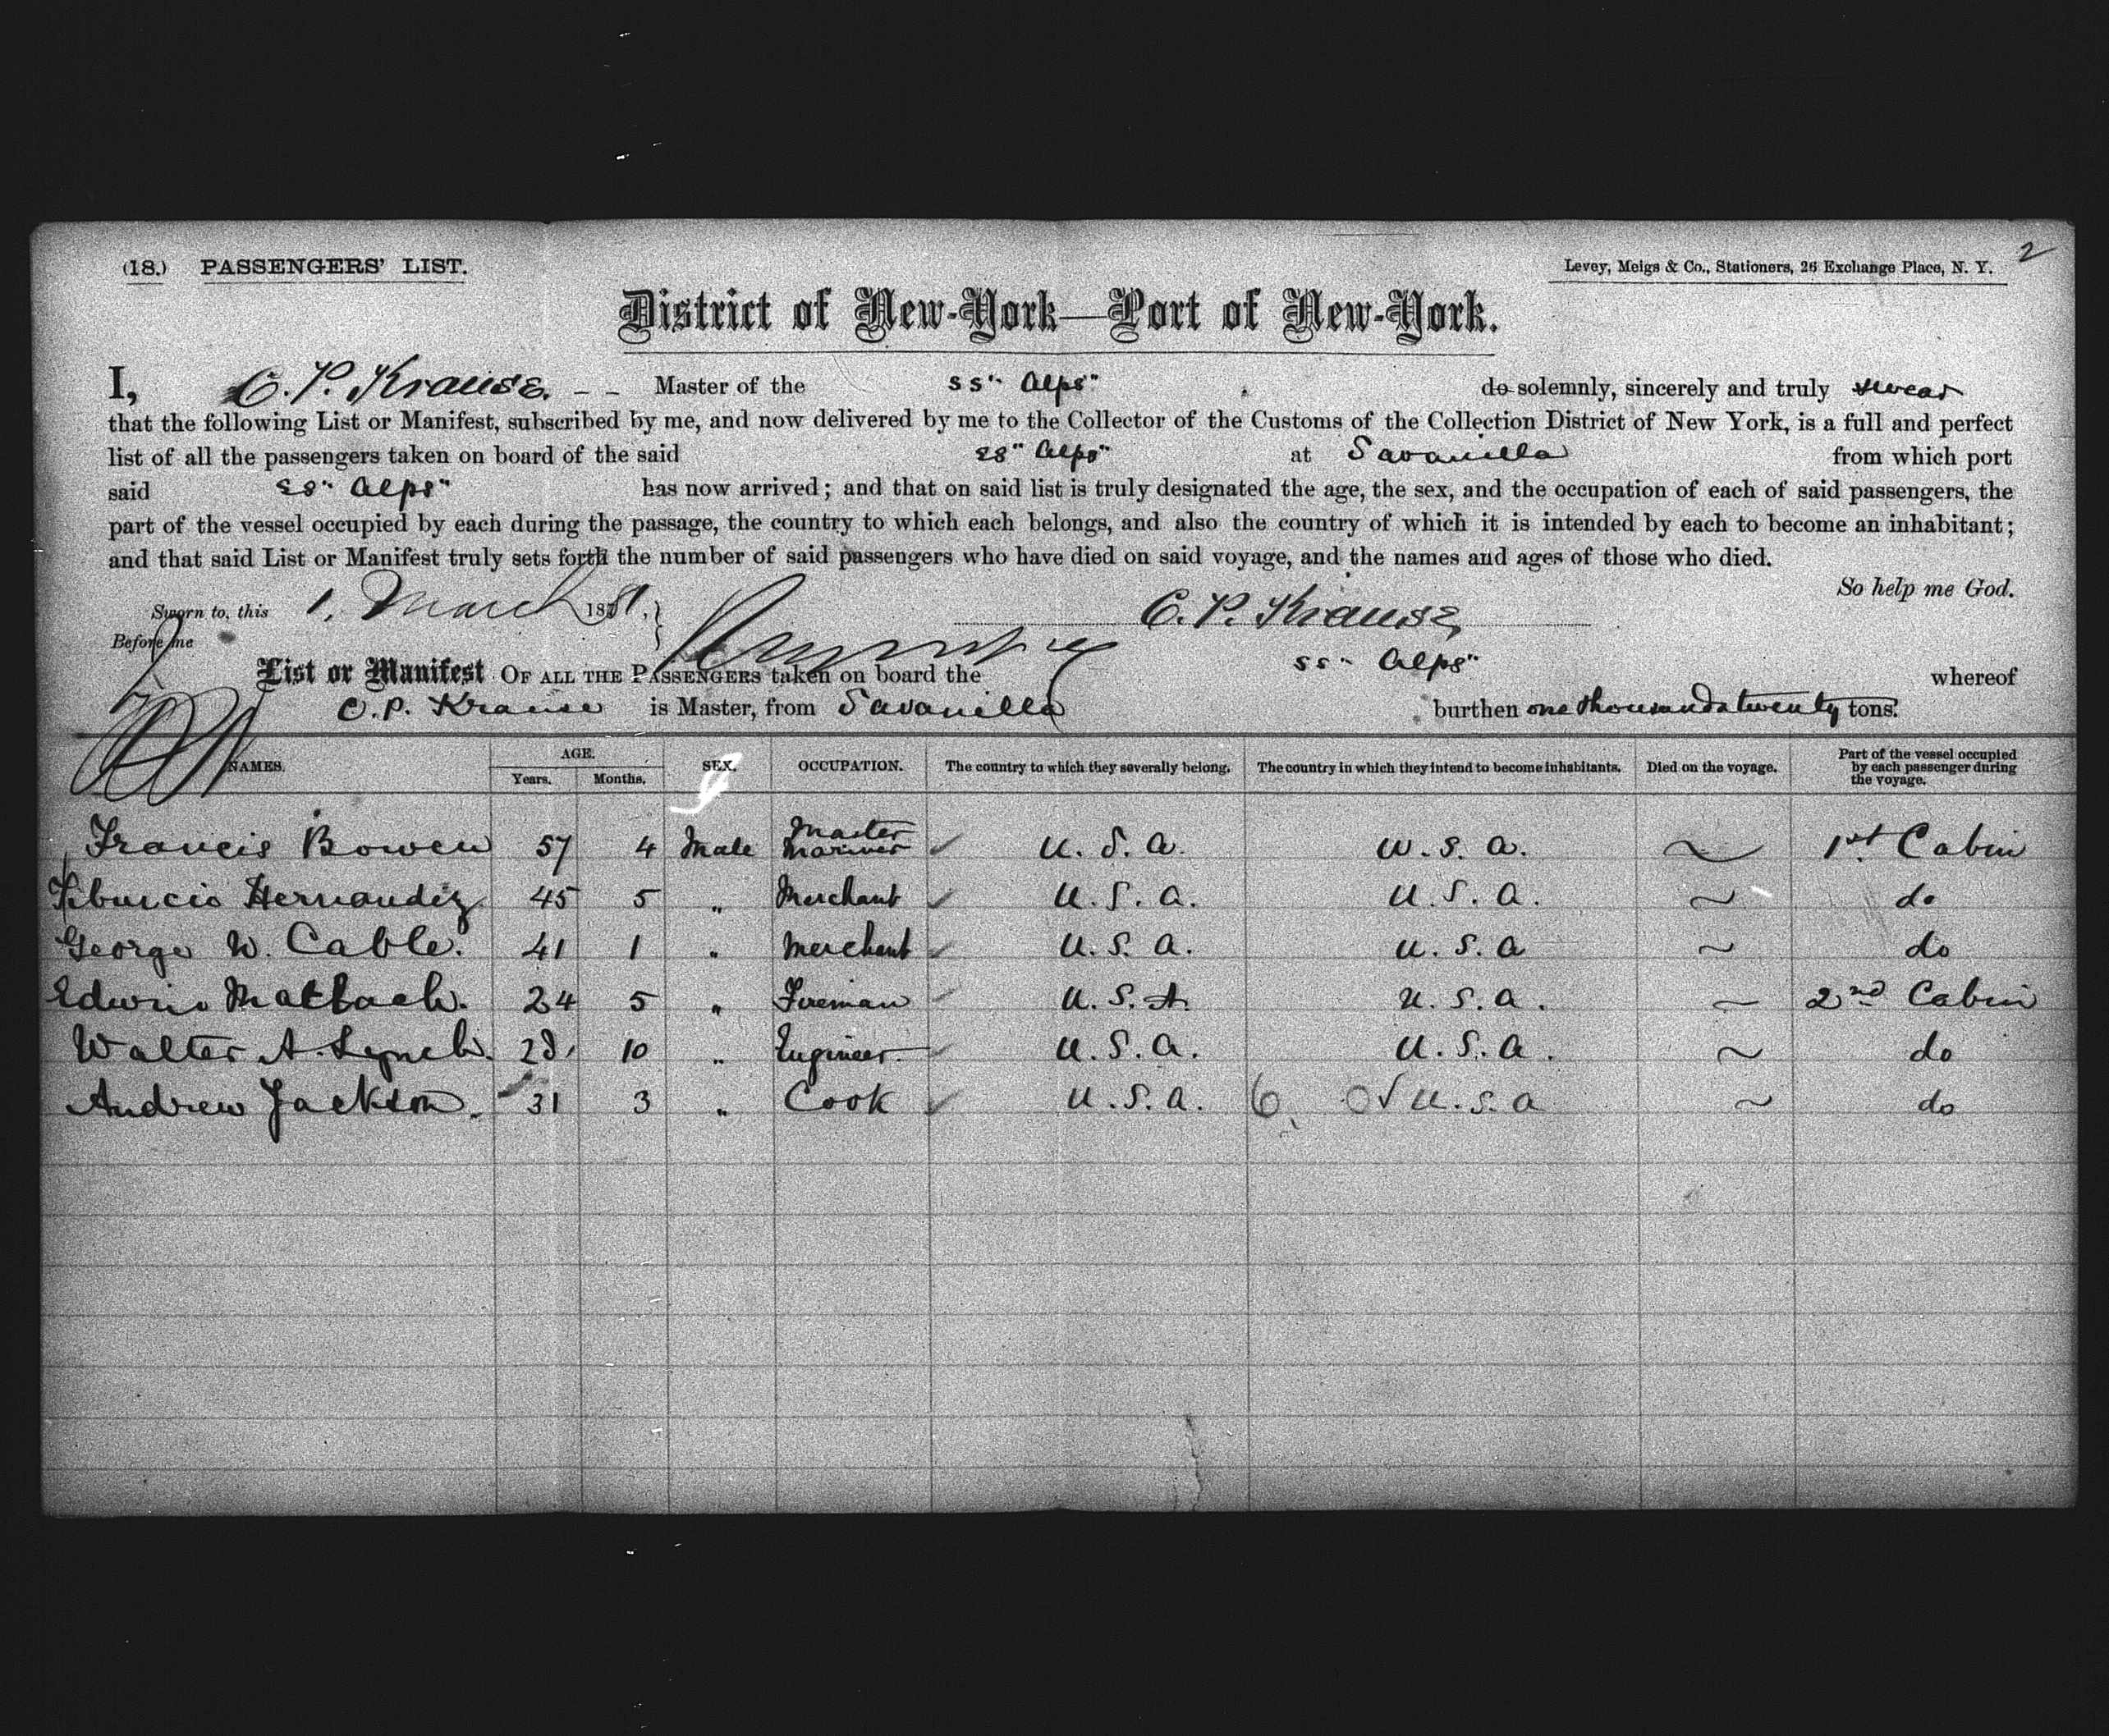 2
(18.) PASSENGERS' LIST. Levey, Meigs & Co., Stationers, 26 Exchange Place, N. Y.
District of New-York—Port of New-York.
I, C. P. Krause. - - Master of the SS" Alps" do solemnly, sincerely and truly swear
that the following List or Manifest, subscribed by me, and now delivered by me to the Collector of the Customs of the Collection District of New York, is a full and perfect
list of all the passengers taken on board of the said SS" Alps" at Savanilla from which port
said SS" Alps" has now arrived; and that on said list is truly designated the age, the sex, and the occupation of each of said passengers, the
part of the vessel occupied by each during the passage, the country to which each belongs, and also the country of which it is intended by each to become an inhabitant;
and that said List or Manifest truly sets forth the number of said passengers who have died on said voyage, and the names and ages of those who died.
So help me God.
Sworn to, this 1. March 1881. C. P. Krause
Before me
List or Manifest OF ALL THE PASSENGERS taken on board the SS" Alps" whereof
C. P. Krause is Master, from Savanilla burthen one thousand a twenty tons.
NAMES. AGE. Years. Months. SEX. OCCUPATION. The country to which they severally belong. The country in which they intend to become inhabitants. Died on the voyage. Part of the vessel occupied by each passenger during the voyage.
Francis Bowen 57 4 Male Master Mariner U. S. A. U. S. A. ~ 1st Cabin
Tiburcio Hernandez 45 5 " Merchant U. S. A. U. S. A. ~ do
George W. Cable. 41 1 " Merchant U. S. A. U. S. A ~ do
Edwin 24 5 " Fireman U. S. A. U. S. A. ~ 2nd Cabin
Walter A. Lynch. 28 10 " Engineer U. S. A. U. S. A. ~ do
Andrew Jackson. 31 3 " Cook U. S. A. 6 U. S. A ~ do